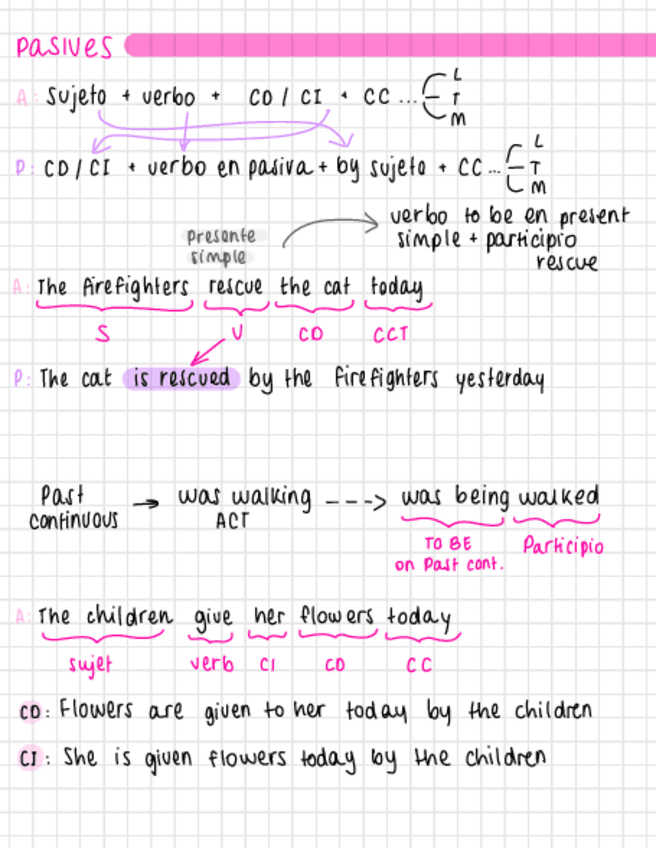 PASIVES
A: Sujeto + verbo + CD / CI + CC ... L T M
P: CD / CI + verbo en pasiva + by sujeto + CC ... L T M
presente simple
verbo to be en present
simple + participio
rescue
A: The firefighters rescue the cat today
S V CD CCT
P: The cat is rescued by the firefighters yesterday
Past continuous → was walking ---> was being walked
ACT
TO BE on Past cont. Participio
A: The children give her flowers today
sujet verb CI CD CC
CD: Flowers are given to her today by the children
CI: She is given flowers today by the children